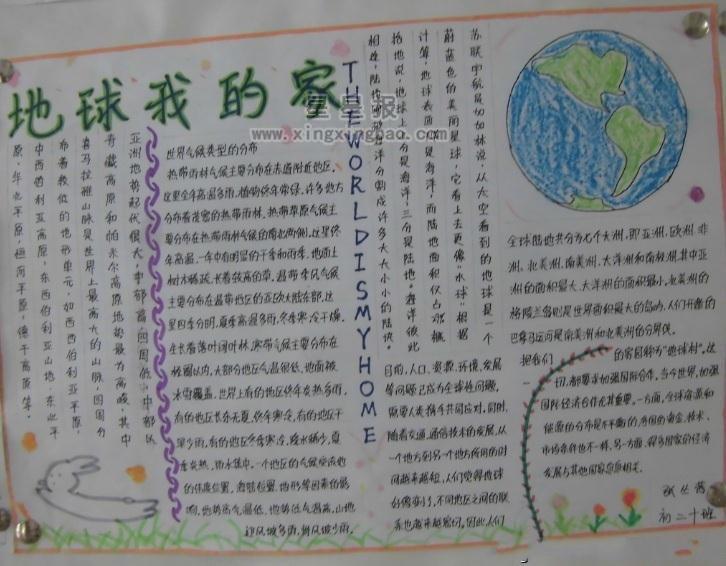 地球我的家
星星报
www.xingxingbao.com
THEWORLDISMYHOME
苏联宇航员加加林说，从太空看到的地球是一个
蔚蓝色的美丽星球，它看上去更像“水球”根据
计算，地球表面
是海洋，而陆地面积仅占
括地说，地球上
分是海洋，三分是陆地。海洋彼此
相连，陆地
海洋分割成许多大大小小的陆块。
世界气候类型的分布
热带雨林气候主要分布在赤道附近地区，
这里全年高温多雨，植物终年常绿，许多地方
分布着茂密的热带雨林，热带草原气候主
要分布在热带雨林气候的南北两侧，这里终
年高温，一年中有明显的干季和雨季，地面上
树木稀疏，长着较高的草，温带季风气候
主要分布在温带地区的亚欧大陆东部，这
里四季分明，夏季高温多雨，冬季寒冷干燥，
生长着落叶阔叶林，寒带气候主要分布在
极圈以内，大部分地区气温很低，地面被
冰雪覆盖，世界上有的地区终年炎热多雨，
有的地区长冬无夏，终年寒冷，有的地区干
旱少雨，有的地区冬季寒冷，降水稀少，夏
季炎热，雨水集中，一个地区的气候受该地
的纬度位置，海陆位置，地形等因素的影
响，地势高气温低，地势低气温高，山地
迎风坡多雨，背风坡少雨。
亚洲地势起伏很大，中部高，四周低，中部以
青藏高原和帕米尔高原地势最为高峻，其中
喜马拉雅山脉是世界上最高大的山脉，四周分
布着较低的地形单元，如西西伯利亚平原，
中西伯利亚高原，东西伯利亚山地，东北平
原，华北平原，恒河平原，德干高原等。
全球陆地共分为七个大洲，即亚洲、欧洲、非
洲、北美洲、南美洲、大洋洲和南极洲，其中亚
洲的面积最大，大洋洲的面积最小，北美洲的
格陵兰岛则是世界面积最大的岛屿，人们开凿的
巴拿马运河是南美洲和北美洲的分界线。
目前，人口、资源、环境、发展
等问题已成为全球性问题，
需要人类携手共同应对，同时，
随着交通、通信技术的发展，从
一个地方到另一个地方所用的时
间越来越短，人们觉得地球
好像变小了，不同地区之间的联
系也越来越密切，因此，人们
把我们
的家园称为“地球村”，这
一切，都要求加强国际合作，当今世界，加强
国际经济合作尤其重要，一方面，全球资源和
能源的分布是不平衡的，各国的资金、技术、
市场条件也不一样，另一方面，很多国家的经济
发展与其他国家息息相关。
初二十班